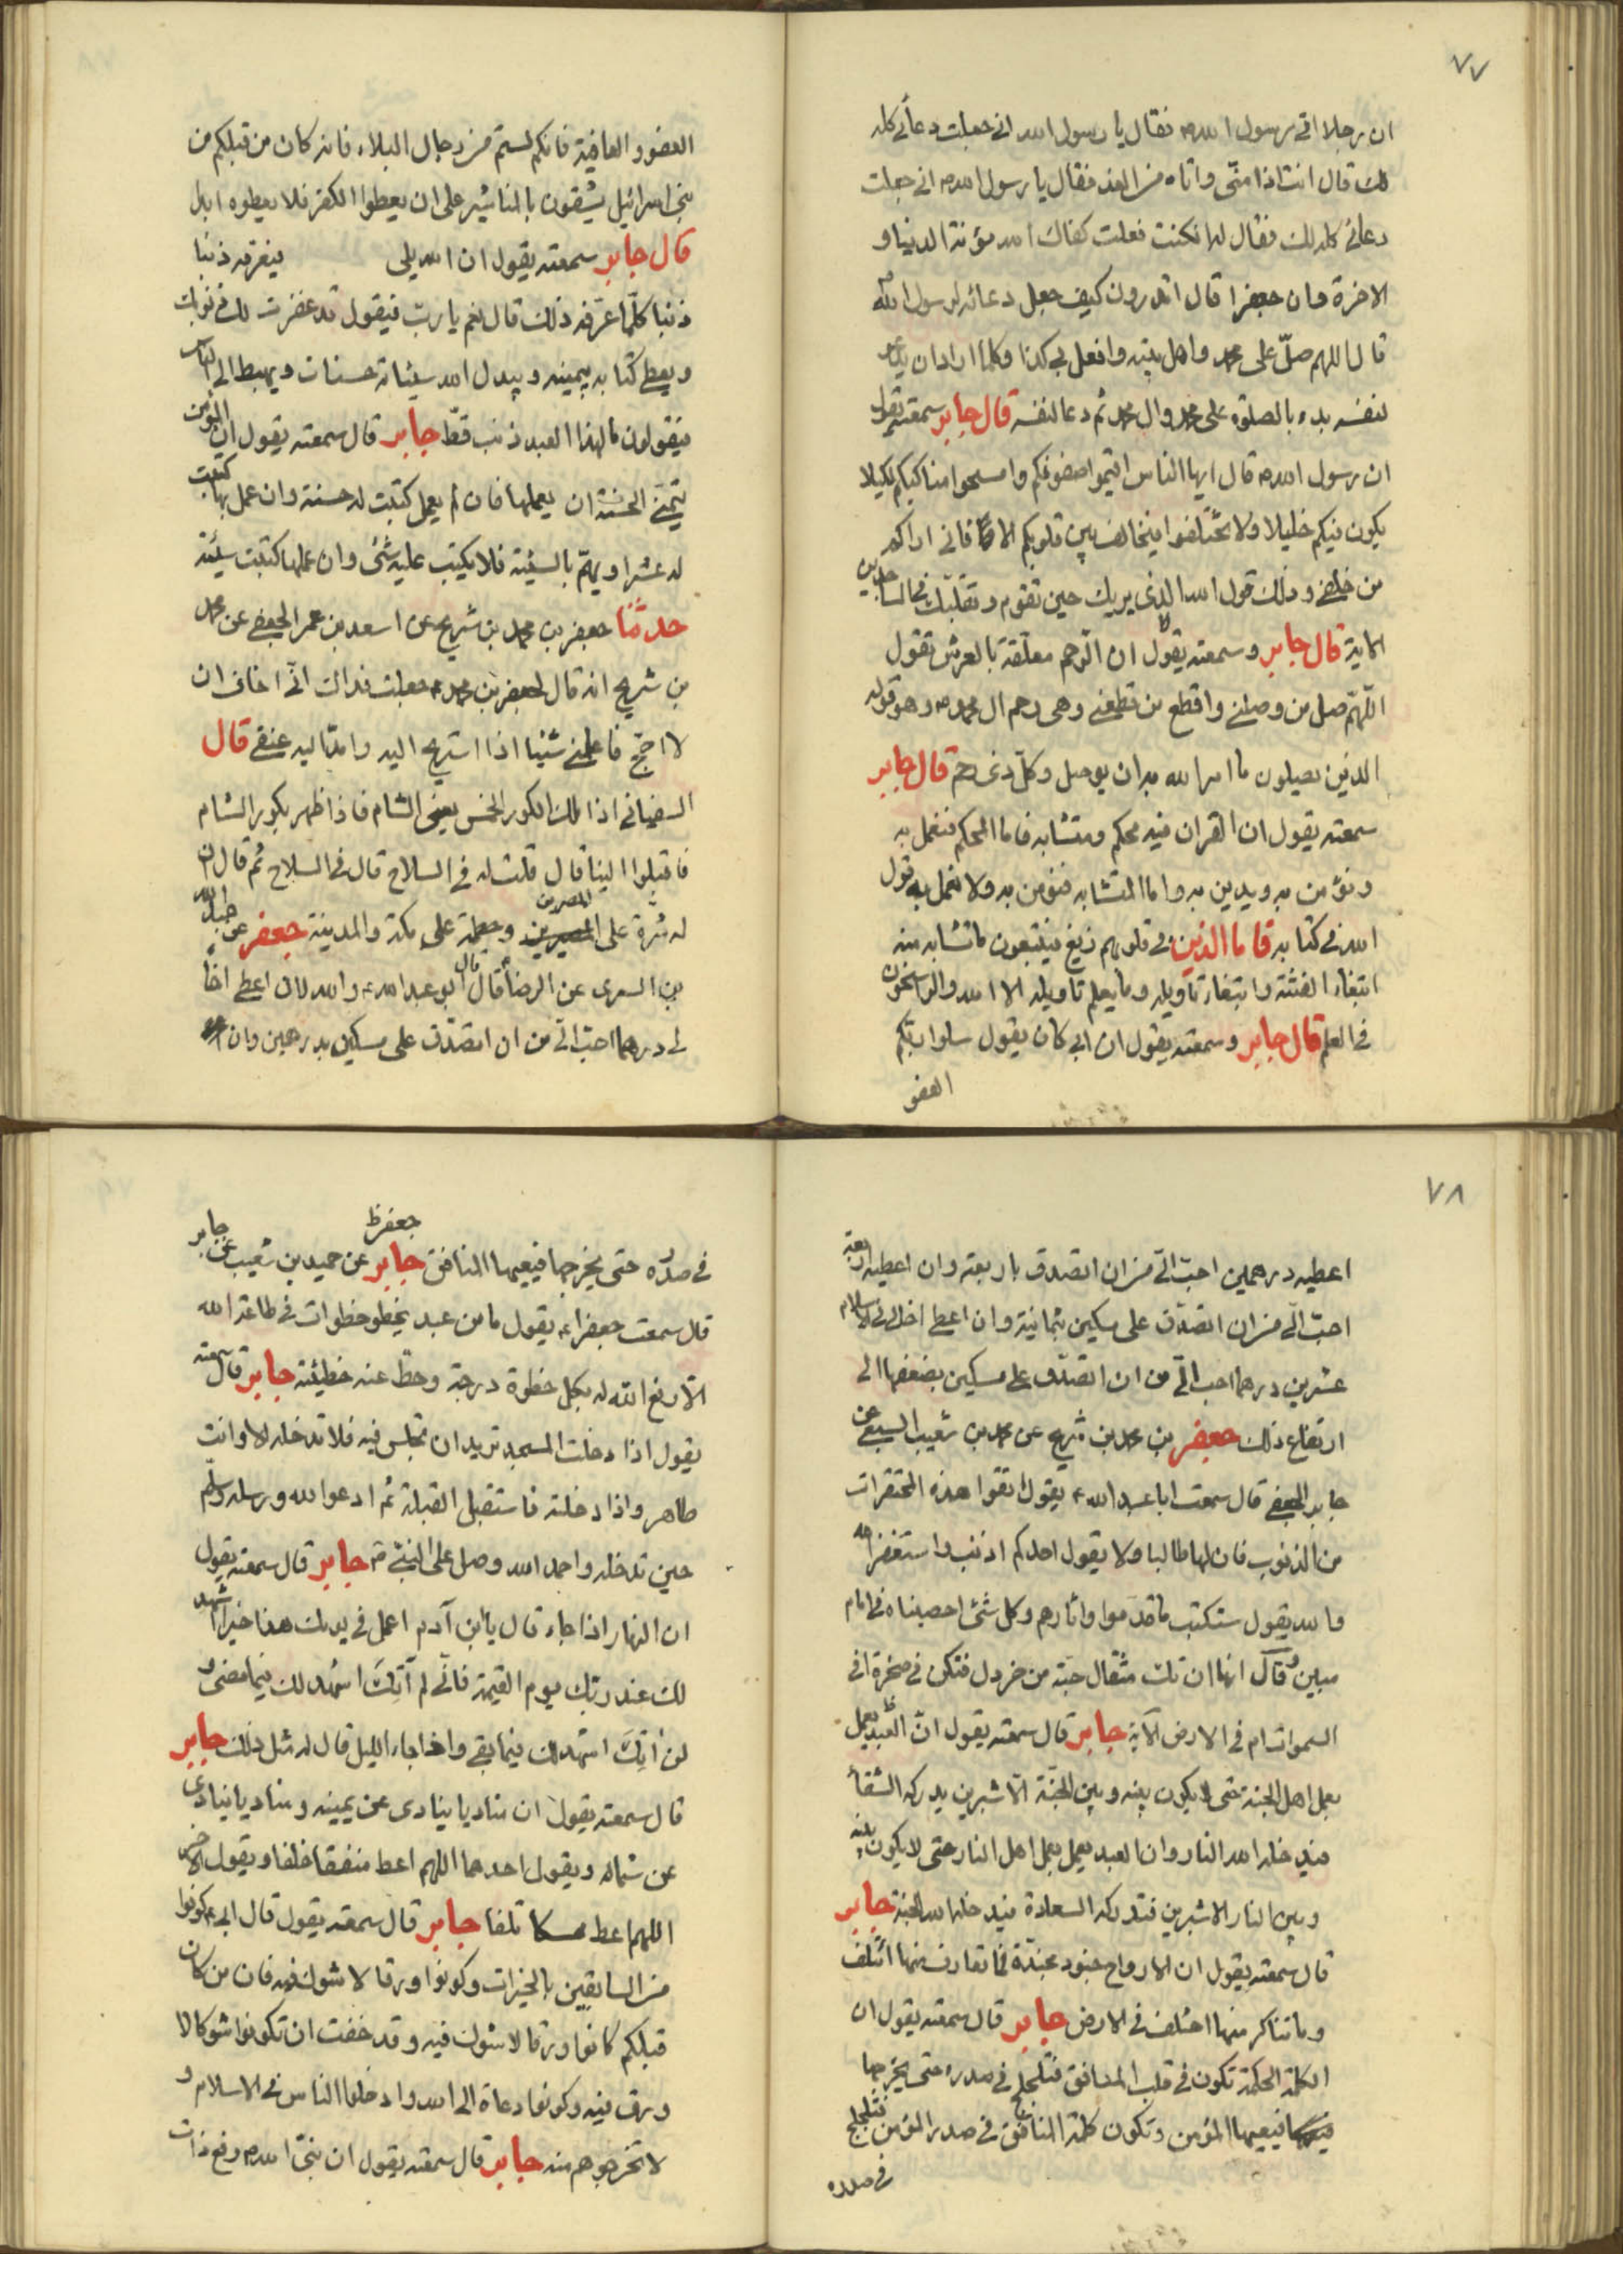 ٧٧
ان رجلا اتى رسول الله ص فقال يا رسول الله انى جعلت دعائى كله
لك قال انت اذا منّى واتاه من الغد فقال يا رسول الله ص انى جعلت
دعائى كله لك فقال له ان كنت فعلت كفاك الله مؤنة الدنيا و
الاخرة وان جعفرا قال اتدرون كيف جعل دعائه لرسول الله
قال اللهم صلّ على محمد واهل بيته وافعل بى كذا وكلما اراد ان يدعو
لنفسه بدء بالصلوة على محمد وال محمد ثم دعا لنفسه قال جابر سمعته يقول
ان رسول الله ص قال ايها الناس اقيموا صفوفكم وامسحوا مناكبكم لكيلا
يكون فيكم خليلا ولا تختلفوا فيخالف بين قلوبكم الا فانى اراكم
من خلفى وذلك قول الله الذى يريك حين تقوم وتقلّبك فى الساجدين
الاية قال جابر وسمعته يقول ان الرحم معلّقة بالعرش تقول
اللّهمّ صل من وصلنى واقطع من قطعنى وهى رحم ال محمد ص وهو قوله
الذين يصلون ما امر الله به ان يوصل وكلّ ذى رحم قال جابر
سمعته يقول ان القران فيه محكم ومتشابه فاما المحكم فنعمل به
ونؤمن به ويدين به واما المتشابه فنؤمن به ولا نعمل به قول
الله فى كتابه فاما الذين فى قلوبهم زيغ فيتبعون ما تشابه منه
ابتغاء الفتنة وابتغاء تاويله وما يعلم تاويله الا الله والراسخون
فى العلم قال جابر وسمعته يقول ان ابى كان يقول سلوا ربّكم
العفو
العفو والعافية فانكم لستم من رجال البلاء فانه كان من قبلكم من
بنى اسرائيل يشقون بالمناشير على ان يعطوا الكفر فلا يعطوه ابدا
قال جابر سمعته يقول ان الله يلى فيعرفه ذنبا
ذنبا كلّما عرّفه ذلك قال نعم يا ربّ فيقول قد غفرت لك
ويعطى كتابه بيمينه ويبدل الله سيئاته حسنات ويهبط الى الناس
فيقولون ما لهذا العبد ذنب قطّ جابر قال سمعته يقول ان المؤمن
يتمنّى الحسنة ان يعملها فان لم يعمل كتبت له حسنة وان عمل بها كتبت
له عشرا ويهمّ بالسيئة فلا يكتب عليه شئ وان عملها كتبت سيئة
حدثنا جعفر بن محمد بن شريح عن اسعد بن عمر الجعفى عن محمد
بن شريح انه قال لجعفر بن محمد جعلت فداك انّى اخاف ان
لا احجّ فاعلمنى شيئا اذا استريح اليه وامدّ اليه عنقى قال
السفيانى اذا ملك الكور الخمس يعنى الشام فاذا ظهر بكور الشام
فاقبلوا الينا قال قلت له فى السلاح قال فى السلاح ثم قال ان
له شرة على المصرين وحملة على مكة والمدينة جعفر عن عبد الله
بن السرى عن الرضا قال قال ابو عبد الله ع والله لان اعطى اخا
لى درهما احبّ الىّ من ان اتصدّق على مسكين بدرهمين وان
٧٨
اعطيه درهمين احبّ الىّ من ان اتصدق باربعة وان اعطيه اربعة
احبّ الىّ من ان اتصدّق على مسكين بثمانية وان اعطى اخا لى فى الاسلام
عشرين درهما احب الىّ من ان اتصدّق على مسكين بضعفها الى
ارتفاع ذلك جعفر بن محمد بن شريح عن محمد بن شعيب السبيعى عن
جابر الجعفى قال سمعت ابا عبد الله ع يقول اتقوا هذه المحقرات
من الذنوب فان لها طالبا ولا يقول احدكم اذنب واستغفر الله
والله يقول سنكتب ما قدموا واثارهم وكل شئ احصيناه فى امام
مبين وقال انها ان تك مثقال حبّة من خردل فتكن فى صخرة او فى
السموات ام فى الارض الآية جابر قال سمعته يقول انّ العبد يعمل
بعمل اهل الجنة حتى لا يكون بينه وبين الجنّة الّا شبرين يدركه الشقاء
فيدخله الله النار وان العبد يعمل بعمل اهل النار حتى لا يكون بينه
وبين النار الا شبرين فتدركه السعادة فيدخله الله الجنة جابر
قال سمعته يقول ان الارواح جنود مجنّدة فما تعارف منها ائتلف
وما تناكر منها اختلف فى الارض جابر قال سمعته يقول ان
الكلمة الحكمة تكون فى قلب المنافق فتلجلج فى صدره حتى يخرجها
فيعيها المؤمن وتكون كلمة المنافق فى صدر المؤمن فتلجلج
فى صدره
جعفر ظ
فى صدره حتى يخرجها فيعيها المنافق جابر عن حميد بن شعيب عن جابر
قال سمعت جعفرا ع يقول ما من عبد يخطو خطوات فى طاعة الله
الّا رفع الله له بكل خطوة درجة وحطّ عنه خطيئة جابر قال سمعته
يقول اذا دخلت المسجد تريد ان تجلس فيه فلا تدخله الا وانت
طاهر واذا دخلته فاستقبل القبلة ثم ادعوا الله ورسله وسلّم
حين تدخله واحمد الله وصل على النبىّ ص جابر قال سمعته يقول
ان النهار اذا جاء قال يا ابن آدم اعمل فى يومك هذا خيرا اشهد
لك عند ربّك يوم القيمة فانّى لم آتِكَ اشهد لك فيما مضى و
لن آتِكَ اشهد لك فيما بقى واذا جاء الليل قال له مثل ذلك جابر
قال سمعته يقول ان مناديا ينادى عن يمينه ومناديا ينادى
عن شماله ويقول احدهما اللهم اعط منفقا خلفا ويقول الاخر
اللهم اعط ممسكا تلفا جابر قال سمعته يقول قال ابى ع كونوا
من السابقين بالخيرات وكونوا ورقا لا شوك فيه فان من كان
قبلكم كانوا ورقا لا شوك فيه وقد خفت ان تكونوا شوكا لا
ورق فيه وكونوا دعاة الى الله وادخلوا الناس فى الاسلام و
لا تخرجوهم منه جابر قال سمعته يقول ان نبىّ الله ص رفع ذات